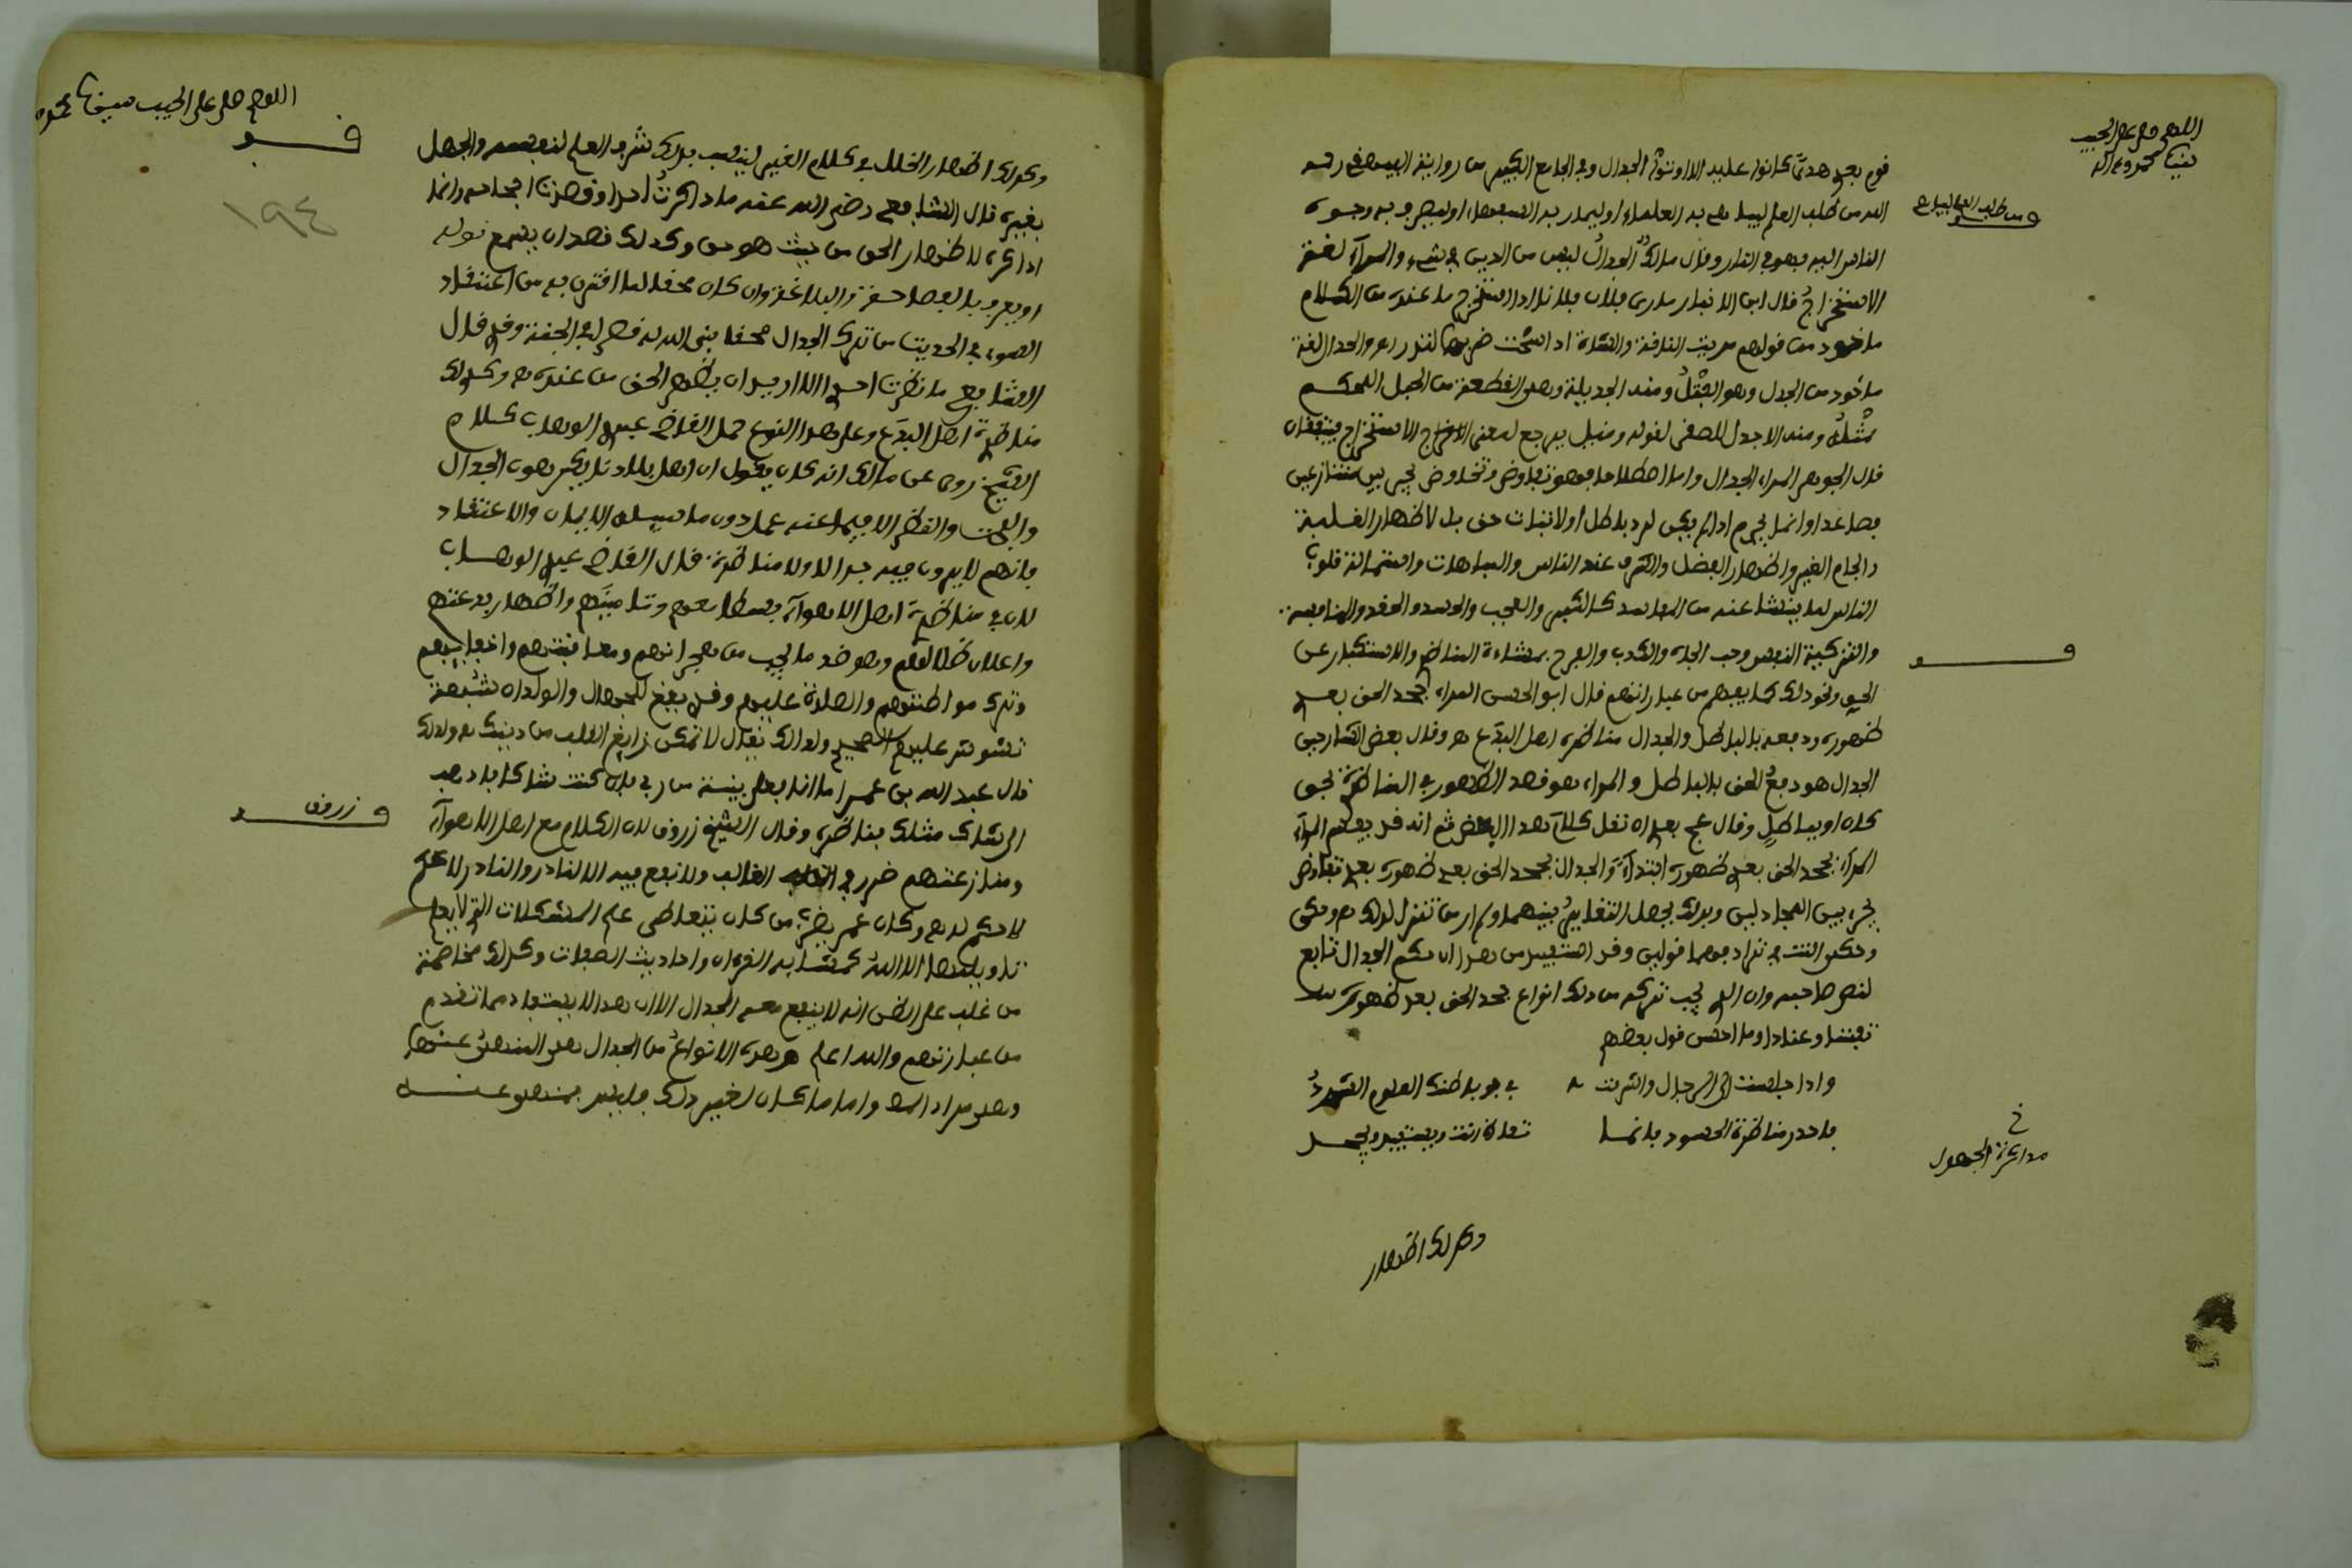 اللهم صل على الحبيب
سيدنا محمد وءاله
قوم بعد هدى كانوا عليه الا اوتوا الجدال وفي الجامع الكبير من رواية البيهقي رحمه
الله من طلب العلم ليباهي به العلماء او ليماري به السفهاء او ليصرف به وجوه
ومن طلب العلم ليباهي
الناس اليه فهو في النار وقال مالك الجدال ليس من الدين في شيء والمراء لغة
الاستخراج قال ابن الانبار مارى فلان فلانا اذا استخرج ما عنده من الكلام
ماخوذ من قولهم مريت الناقة والشاة اذا مسحت ضرعها لتدر اهـ والجدال لغة
ماخوذ من الجدل وهو الفتل ومنه الجديلة وهي القطعة من الحبل المحكم
فتله ومنه الاجدل للصقر لقوته وقيل يرجع لمعنى الاستخراج فيتفقان
قال الجوهري المراء الجدال واما اصطلاحا فهو تفاوض وتخاوض يجري بين متنازعين
فصاعدا وانما يحرم اذا لم يكن لرد باطل او لاثبات حق بل لاظهار الغلبة
والجام الغير واظهار الفضل والشرف عند الناس والمباهات واستمالة قلوب
الناس لما ينشا عنه من المفاسد كالتكبر والعجب والحسد والحقد والمنافسة
وتزكية النفس وحب الجاه والكذب والفرح بمساءة المناظر والاستكبار عن
الحق ونحو ذلك كما يفهم من عباراتهم قال ابو الحسن المراء جحد الحق بعد
ظهوره ودفعه بالباطل والجدال مناظرة اهل البدع هـ وقال بعض الشارحين
الجدال هو دفع الحق بالباطل والمراء هو قصد الظهور في المناظرة بحق
كان او بباطل وقال عج بعد ان نقل كلام هذا البعض ثم انه قد يفهم ان
المراء جحد الحق بعد ظهوره ابتداء والجدال جحد الحق بعد ظهوره بعد تفاوض
يجري بين المجادلين وبذلك يحصل التغاير بينهما ولم ار من تنزل لذلك هـ وحكى
وحكى التتائي ترادفهما قولين وقد استفيد من هذا ان حكم الجدال تابع
لقصد صاحبه وان الذي يجب تركه من ذلك انواع جحد الحق بعد ظهوره
تعنتا وعنادا وما احسن قول بعضهم
واذا جلست الى الرجال واشرقت في جو باطنك العلوم الشرد
فاحذر مناظرة الحسود فانما تغتاظ انت ويستفيد ويجحد
خ
مذاكرة الجهول
وكذلك اظهار
اللهم صل على الحبيب سيدنا محمد
قـــف
١٩٤
وكذلك اظهار الخلل في كلام الغير لينسب بذلك شرف العلم لنفسه والجهل
بغيره قال الشافعي رضي الله عنه ما ذاكرت احدا وقصدت افحامه وانما
اذاكره لاظهار الحق من حيث هو حق وكذلك قصد ان يسمع قوله
او يعرف بالفصاحة والبلاغة وان كان محقا لما اقترن به من اعتقاد
السوء في الحديث من ترك الجدال محقا بنى الله له قصرا في الجنة وقد قال
الشافعي ما ناظرت احدا الا اريد ان يظهر الحق من عنده هـ وكذلك
مناظرة اهل البدع وعلى هذا النوع حمل القاضي عبد الوهاب كلام
الشيخ روي عن مالك انه كان يقول ان اهل بلادنا يكرهون الجدال
والبحث والنظر الا فيما تحته عمل دون ما سبيله الايمان والاعتقاد
فانهم لا يرون فيه جدالا ولا مناظرة قال القاضي عبد الوهاب
لان في مناظرة اهل الاهواء بسطا معهم وتانيسهم واظهار بدعتهم
واعلان ضلالهم وهو ضد ما يجب من هجرانهم ومعاقبتهم واخفائهم
وترك مواطنتهم والصلاة عليهم وقد يقع للجهال والولدان شبهة
تشوش عليهم الصحيح ولذلك يقال لا تمكن زايغ القلب من دينك هـ ولذلك
قال عبد الله بن عمر اما انا فعلى بينة من ربي فان كنت شاكا فاذهب
الى شاك مثلك فناظره وقال الشيخ زروق لان الكلام مع اهل الاهواء
و زروق
ومنازعتهم ضرر في الغالب ولا نفع فيه الا النادر والنادر لا حكم
لا حكم له هـ وكان عمر يضرب من كان يتعاطى علم المشكلات التي لا يعلم
تاويلها الا الله كمتشابه القرءان واحاديث الصفات وكذلك مخاصمة
من غلب على الظن انه لا ينفع معه الجدال الا ان هذا لا يستفاد مما تقدم
من عباراتهم والله اعلم هـ وهذه الانواع من الجدال هي المنهي عنها
وهي مراد المص واما ما كان لغير ذلك فليس بمنهي عنه